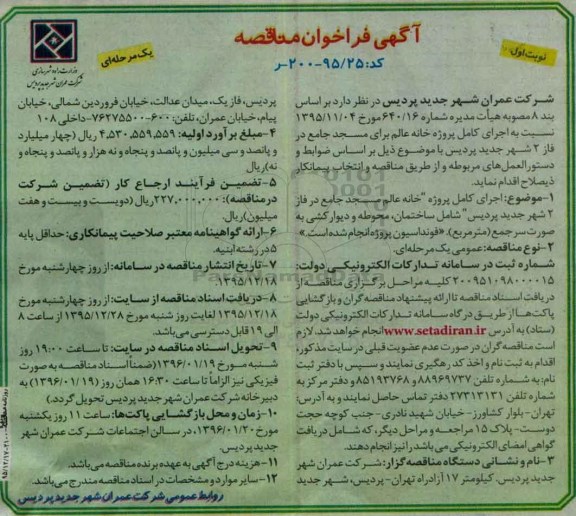 آگهی فراخوان مناقصه
کد: ۹۵/۲۵-۲۰۰-ر
نوبت اول
یک مرحله‌ای
وزارت راه و شهرسازی
شرکت عمران شهر جدید پردیس
شرکت عمران شهر جدید پردیس در نظر دارد بر اساس
بند ۸ مصوبه هیأت مدیره شماره ۶۴۰/۱۶ مورخ ۱۳۹۵/۱۱/۰۴
نسبت به اجرای کامل پروژه خانه عالم برای مسجد جامع در
فاز ۲ شهر جدید پردیس با موضوع ذیل بر اساس ضوابط و
دستورالعمل‌های مربوطه و از طریق مناقصه و انتخاب پیمانکار
ذیصلاح اقدام نماید.
۱-موضوع: اجرای کامل پروژه "خانه عالم مسجد جامع در فاز
۲ شهر جدید پردیس" شامل ساختمان، محوطه و دیوارکشی به
صورت سرجمع (مترمربع). «فونداسیون پروژه انجام شده است.»
۲-نوع مناقصه: عمومی یک مرحله‌ای.
شماره ثبت در سامانه تدارکات الکترونیکی دولت:
۲۰۰۹۵۱۰۹۸۰۰۰۰۱۵ کلیه مراحل برگزاری مناقصه از
دریافت اسناد مناقصه تا ارائه پیشنهاد مناقصه گران و بازگشایی
پاکت‌ها از طریق درگاه سامانه تدارکات الکترونیکی دولت
(ستاد) به آدرس www.setadiran.ir انجام خواهد شد. لازم
است مناقصه گران در صورت عدم عضویت قبلی در سایت مذکور،
اقدام به ثبت نام و اخذ کد رهگیری نمایند و سپس با دفتر ثبت
نام: به شماره تلفن ۸۸۹۶۹۷۳۷ و ۸۵۱۹۳۷۶۸ و دفتر مرکز به
شماره تلفن ۲۷۳۱۳۱۳۱ دفتر تماس حاصل نمایند و به آدرس:
تهران- بلوار کشاورز- خیابان شهید نادری- جنب کوچه حجت
دوست- پلاک ۱۵ مراجعه و مراحل دیگر، که شامل دریافت
گواهی امضای الکترونیکی می‌باشد را نیز انجام دهند.
۳-نام و نشانی دستگاه مناقصه گزار: شرکت عمران شهر
جدید پردیس. کیلومتر ۱۷ آزادراه تهران- پردیس، شهر جدید
پردیس، فاز یک، میدان عدالت، خیابان فروردین شمالی، خیابان
پیام، خیابان عمران، تلفن: ۶۰۰-۷۶۲۷۵۵۰۰-داخلی ۱۰۸
۴-مبلغ برآورد اولیه: ۴,۵۳۰,۵۵۹,۵۵۹ ریال (چهار میلیارد
و پانصد و سی میلیون و پانصد و پنجاه و نه هزار و پانصد و پنجاه و
نه) ریال
۵-تضمین فرآیند ارجاع کار (تضمین شرکت
در مناقصه): ۲۲۷,۰۰۰,۰۰۰ ریال (دویست و بیست و هفت
میلیون) ریال.
۶-ارائه گواهینامه معتبر صلاحیت پیمانکاری: حداقل پایه
۵ در رشته ابنیه.
۷-تاریخ انتشار مناقصه در سامانه: از روز چهارشنبه مورخ
۱۳۹۵/۱۲/۱۸.
۸-دریافت اسناد مناقصه از سایت: از روز چهارشنبه مورخ
۱۳۹۵/۱۲/۱۸ لغایت روز شنبه مورخ ۱۳۹۵/۱۲/۲۸ از ساعت ۸
الی ۱۹ قابل دسترسی می‌باشد.
۹-تحویل اسناد مناقصه در سایت: تا ساعت ۱۹:۰۰ روز
شنبه مورخ ۱۳۹۶/۰۱/۱۹ (ضمنا اسناد مناقصه به صورت
فیزیکی نیز الزاماً تا ساعت ۱۶:۳۰ همان روز (۱۳۹۶/۰۱/۱۹) به
دبیرخانه شرکت عمران شهر جدید پردیس تحویل گردد.)
۱۰-زمان و محل بازگشایی پاکت‌ها: ساعت ۱۱ روز یکشنبه
مورخ ۱۳۹۶/۰۱/۲۰، در سالن اجتماعات شرکت عمران شهر
جدید پردیس
۱۱-هزینه درج آگهی به عهده برنده مناقصه می‌باشد.
۱۲-سایر موارد و مشخصات در اسناد مناقصه مندرج می‌باشد.
روابط عمومی شرکت عمران شهر جدید پردیس